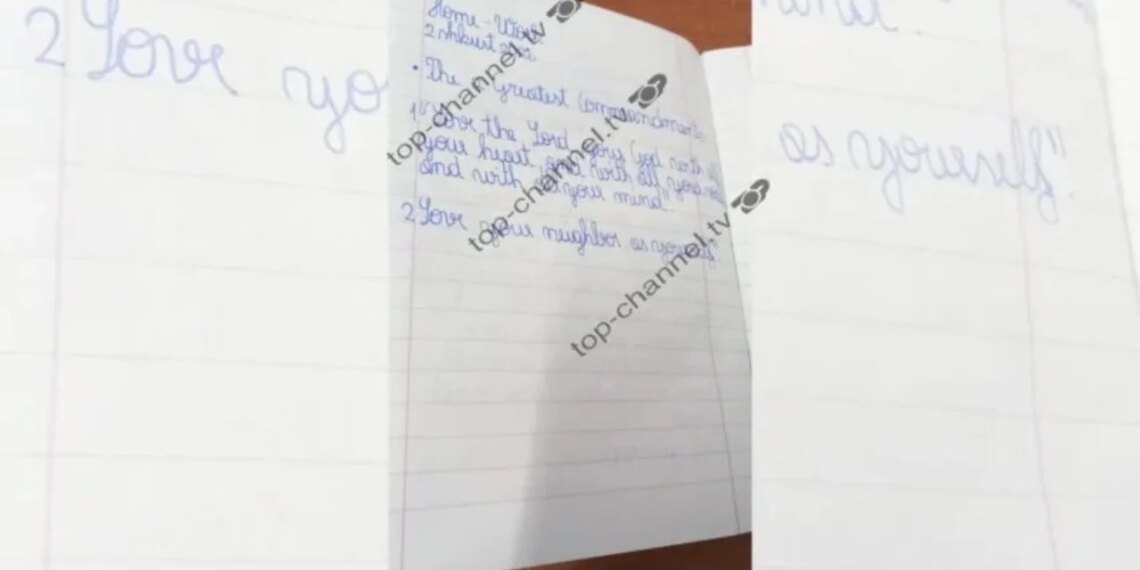 2 Love yo
Home - Work
2 shkurt
• The Greatest Commandment
1 "Love the Lord your God with all
your heart and with all your
and with your mind.
2 Love your neighbor as yourself"
mind.
as yourself".
top-channel.tv
top-channel.tv
top-channel.tv